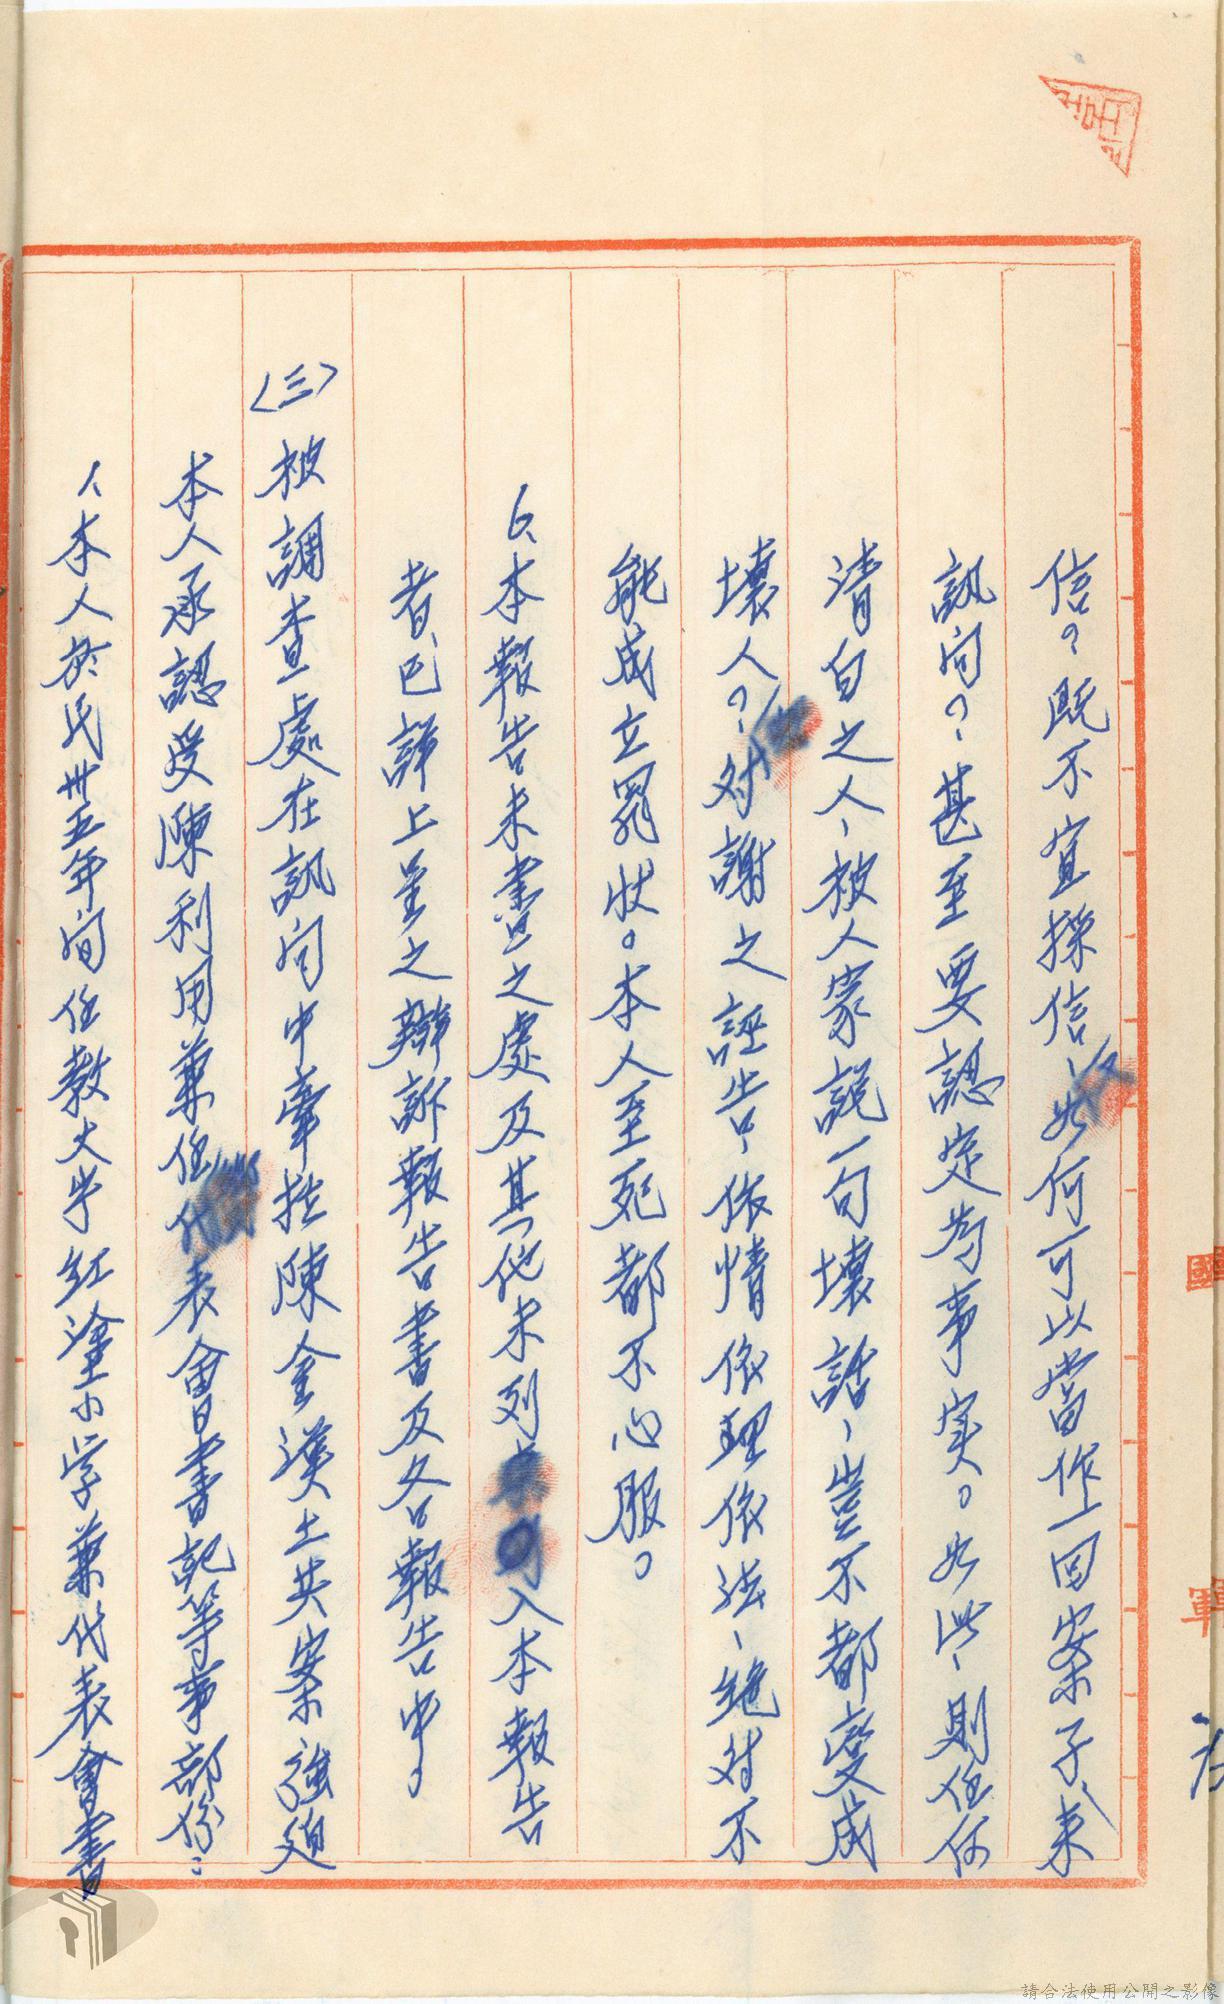 信？既不宜採信、如何可以當作一回案子、來
訊问？甚至要認定為事実。如此、則任何
清白之人、被人家説一句壞話、豈不都變成
壞人？对謝之誣告、依情依理依法、絶对不
能成立罪状。本人至死都不心服。
6、本報告未書之處及其他未列入本報告
者、已詳上呈之辯訴報告書及各報告中。
〈三〉被調查處在訊问中牽拄陳金漢土共案強廹
本人承認受陳利用兼任代表會書記等事部份：
1、本人於民卅五年间任教大半红塗小学兼代表會書
國
軍
請合法使用公開之影像